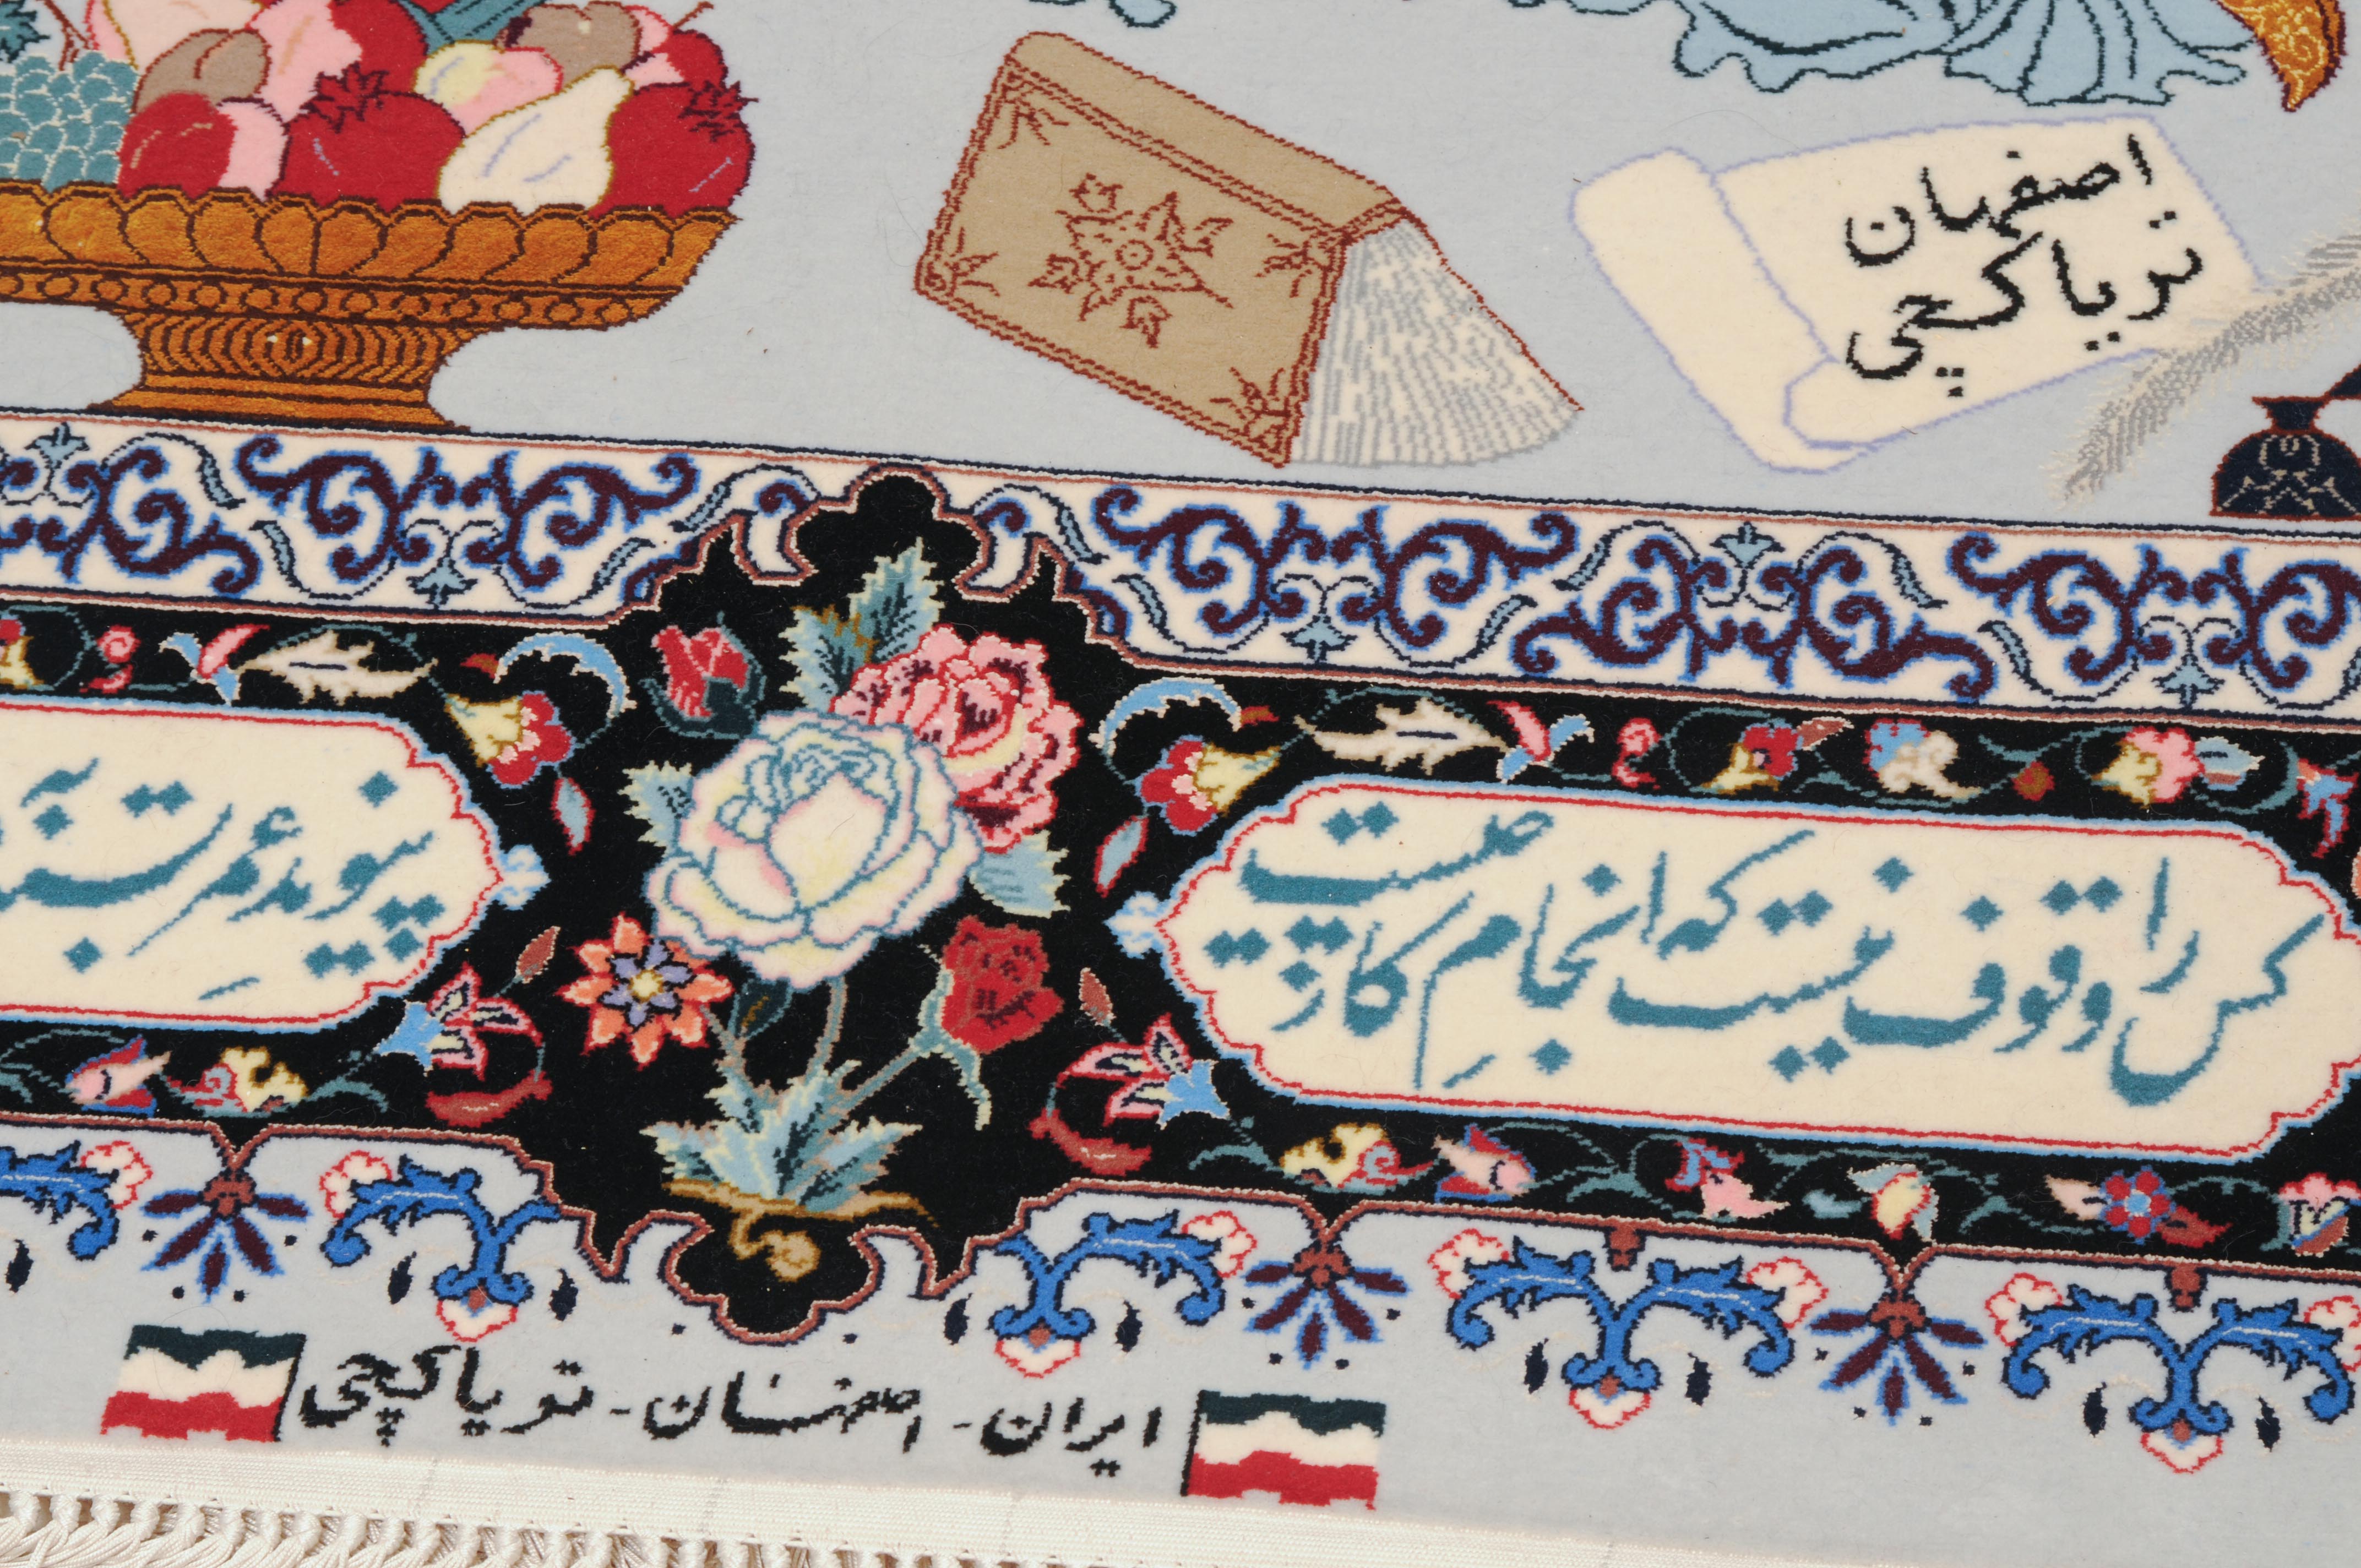 اصفهان
تریاکچی
کس را وقوف نیست که انجامِ کار چیست
پیوندِ عمر بسته به
ایران - اصفهان - تریاکچی